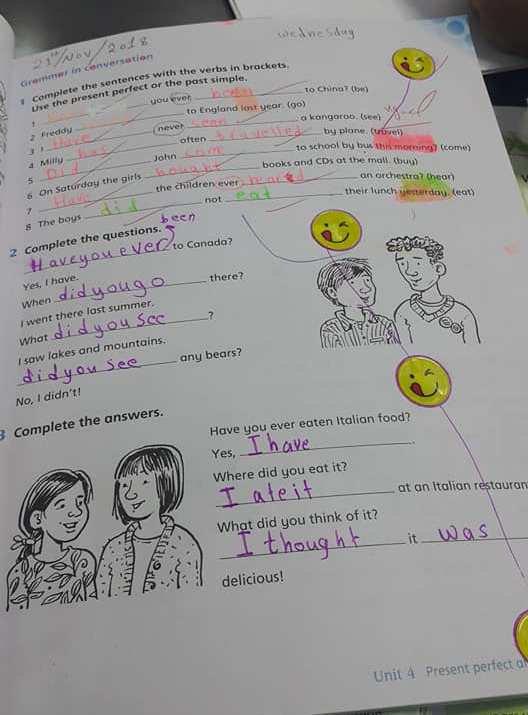 21st/Nov/2018
Wednesday
Grammar in conversation
1 Complete the sentences with the verbs in brackets.
Use the present perfect or the past simple.
1 you ever been to China? (be)
2 Freddy to England last year. (go)
3 I Have never seen a kangaroo. (see)
4 Milly has often travelled by plane. (travel)
5 Did John come to school by bus this morning? (come)
6 On Saturday the girls bought books and CDs at the mall. (buy)
7 Have the children ever heard an orchestra? (hear)
8 The boys did not eat their lunch yesterday. (eat)
2 Complete the questions.
been
Have you ever to Canada?
Yes, I have.
When did you go there?
I went there last summer.
What did you see ?
I saw lakes and mountains.
did you see any bears?
No, I didn't!
3 Complete the answers.
Have you ever eaten Italian food?
Yes, I have .
Where did you eat it?
I ate it at an Italian restauran
What did you think of it?
I thought it was
delicious!
Unit 4 Present perfect a